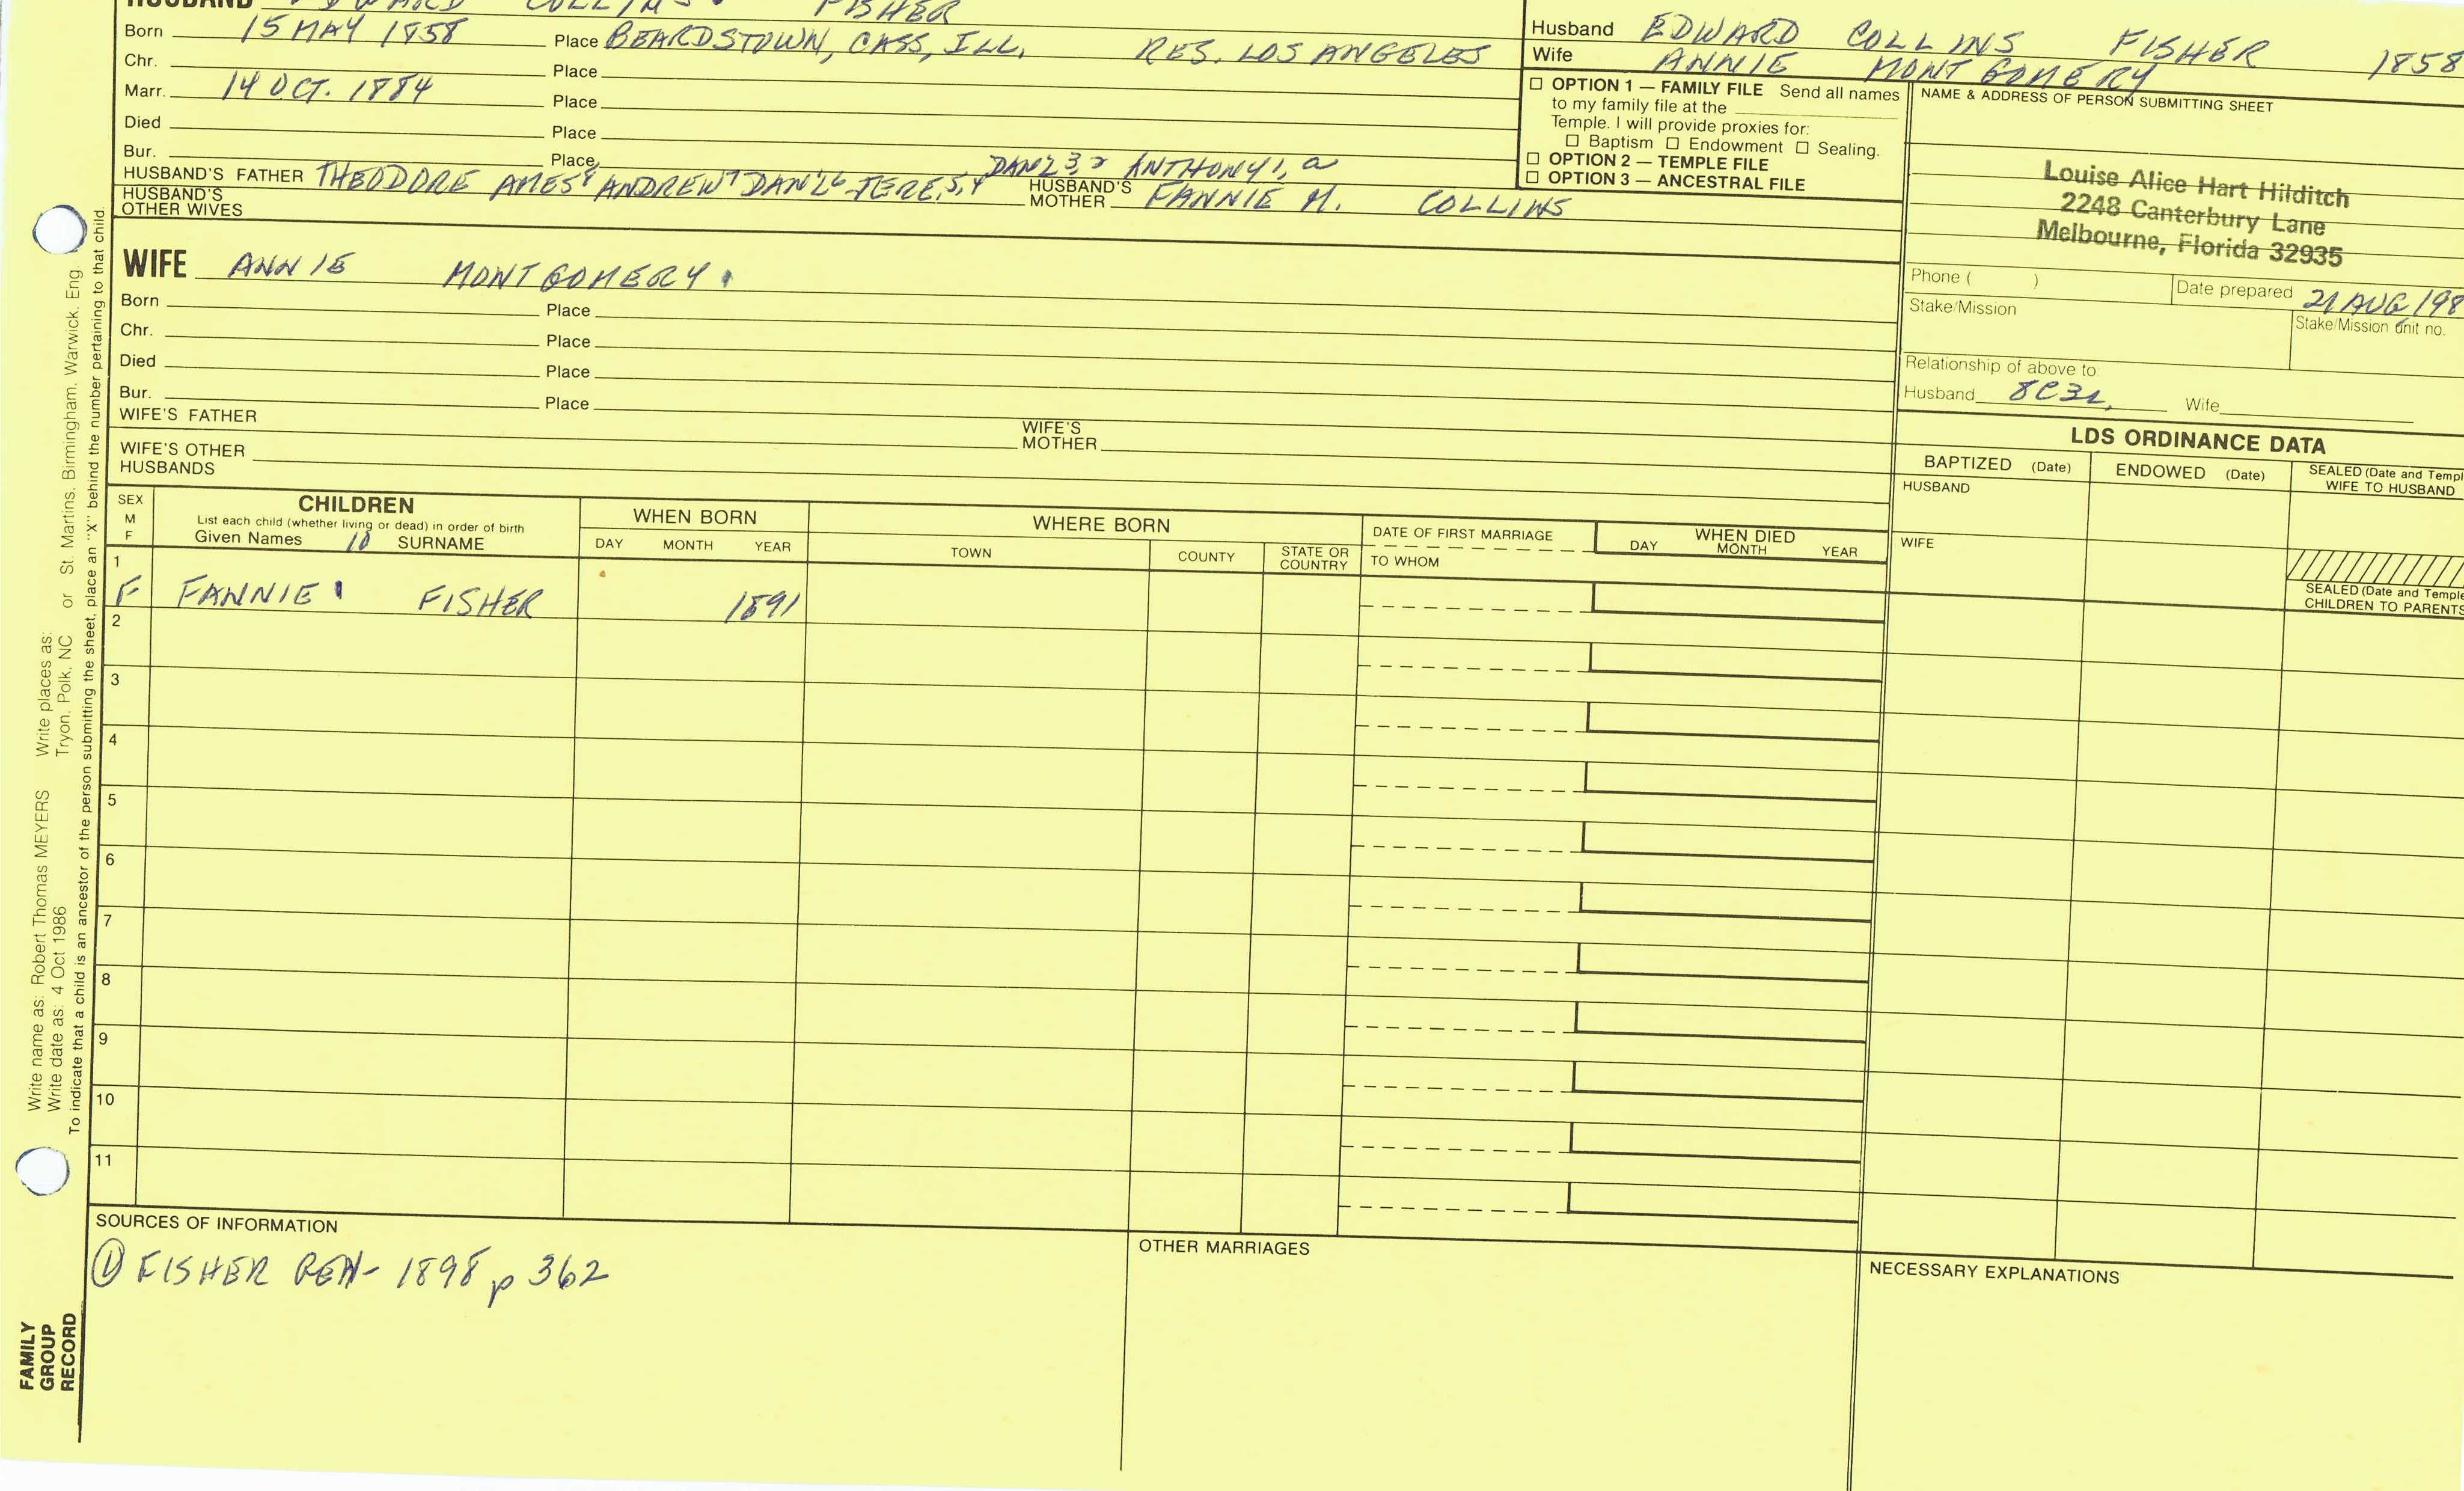 HUSBAND EDWARD COLLINS FISHER
Born 15 MAY 1858 Place BEARDSTOWN, CASS, ILL. RES. LOS ANGELES
Chr. Place
Marr. 14 OCT. 1884 Place
Died Place
Bur. Place
DAN'L 3, 2 ANTHONY 1, a
HUSBAND'S FATHER THEODORE AMES 8 ANDREW 7 DAN'L 6 JERE. 5, 4 HUSBAND'S MOTHER FANNIE M. COLLINS
HUSBAND'S OTHER WIVES
WIFE ANNIE MONTGOMERY.
Born Place
Chr. Place
Died Place
Bur. Place
WIFE'S FATHER WIFE'S MOTHER
WIFE'S OTHER HUSBANDS
Husband EDWARD COLLINS FISHER 1858
Wife ANNIE MONTGOMERY
☐ OPTION 1 — FAMILY FILE Send all names
to my family file at the
Temple. I will provide proxies for:
☐ Baptism ☐ Endowment ☐ Sealing.
☐ OPTION 2 — TEMPLE FILE
☐ OPTION 3 — ANCESTRAL FILE
NAME & ADDRESS OF PERSON SUBMITTING SHEET
Louise Alice Hart Hilditch
2248 Canterbury Lane
Melbourne, Florida 32935
Phone ( ) Date prepared 21 AUG 198
Stake/Mission Stake/Mission unit no.
Relationship of above to
Husband 8C3R, Wife
LDS ORDINANCE DATA
BAPTIZED (Date) ENDOWED (Date) SEALED (Date and Templ
WIFE TO HUSBAND
HUSBAND
WIFE
SEALED (Date and Temple
CHILDREN TO PARENTS
SEX
M
F
CHILDREN
List each child (whether living or dead) in order of birth
Given Names 10 SURNAME
WHEN BORN
DAY MONTH YEAR
WHERE BORN
TOWN COUNTY STATE OR COUNTRY
DATE OF FIRST MARRIAGE
TO WHOM
WHEN DIED
DAY MONTH YEAR
1
F FANNIE FISHER 1891
2
3
4
5
6
7
8
9
10
11
SOURCES OF INFORMATION
① FISHER GEN- 1898 p 362
OTHER MARRIAGES
NECESSARY EXPLANATIONS
Write name as: Robert Thomas MEYERS Write places as: St. Martins, Birmingham, Warwick, Eng
Write date as: 4 Oct 1986 Tryon, Polk, NC or
To indicate that a child is an ancestor of the person submitting the sheet, place an "X" behind the number pertaining to that child.
FAMILY
GROUP
RECORD